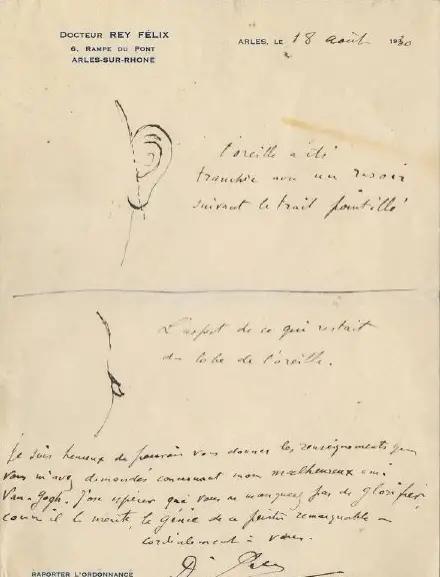 DOCTEUR REY FÉLIX
6, RAMPE DU PONT
ARLES-SUR-RHÔNE
ARLES, LE 18 août 1930
l'oreille a été
tranchée avec un rasoir
suivant le trait pointillé
L'aspect de ce qui restait
du lobe de l'oreille.
Je suis heureux de pouvoir vous donner les renseignements que
vous m'avez demandés concernant mon malheureux ami
Van-Gogh. J'ose espérer que vous ne manquerez pas de glorifier,
comme il le mérite, le génie de ce peintre remarquable
cordialement à vous.
Dr Rey
RAPORTER L'ORDONNANCE